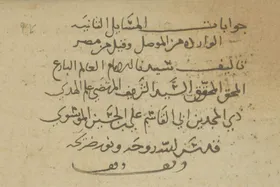 جوابات المسايل الثانية
الواردة من الموصل وقيل من مصر
تاليف سيدنا الامام العالم البارع
المحقق المدقق السيد الشريف المرتضى علم الهدى
ذي المجدين ابي القاسم علي بن الحسين الموسوي
قدس الله روحه ونور ضريحه